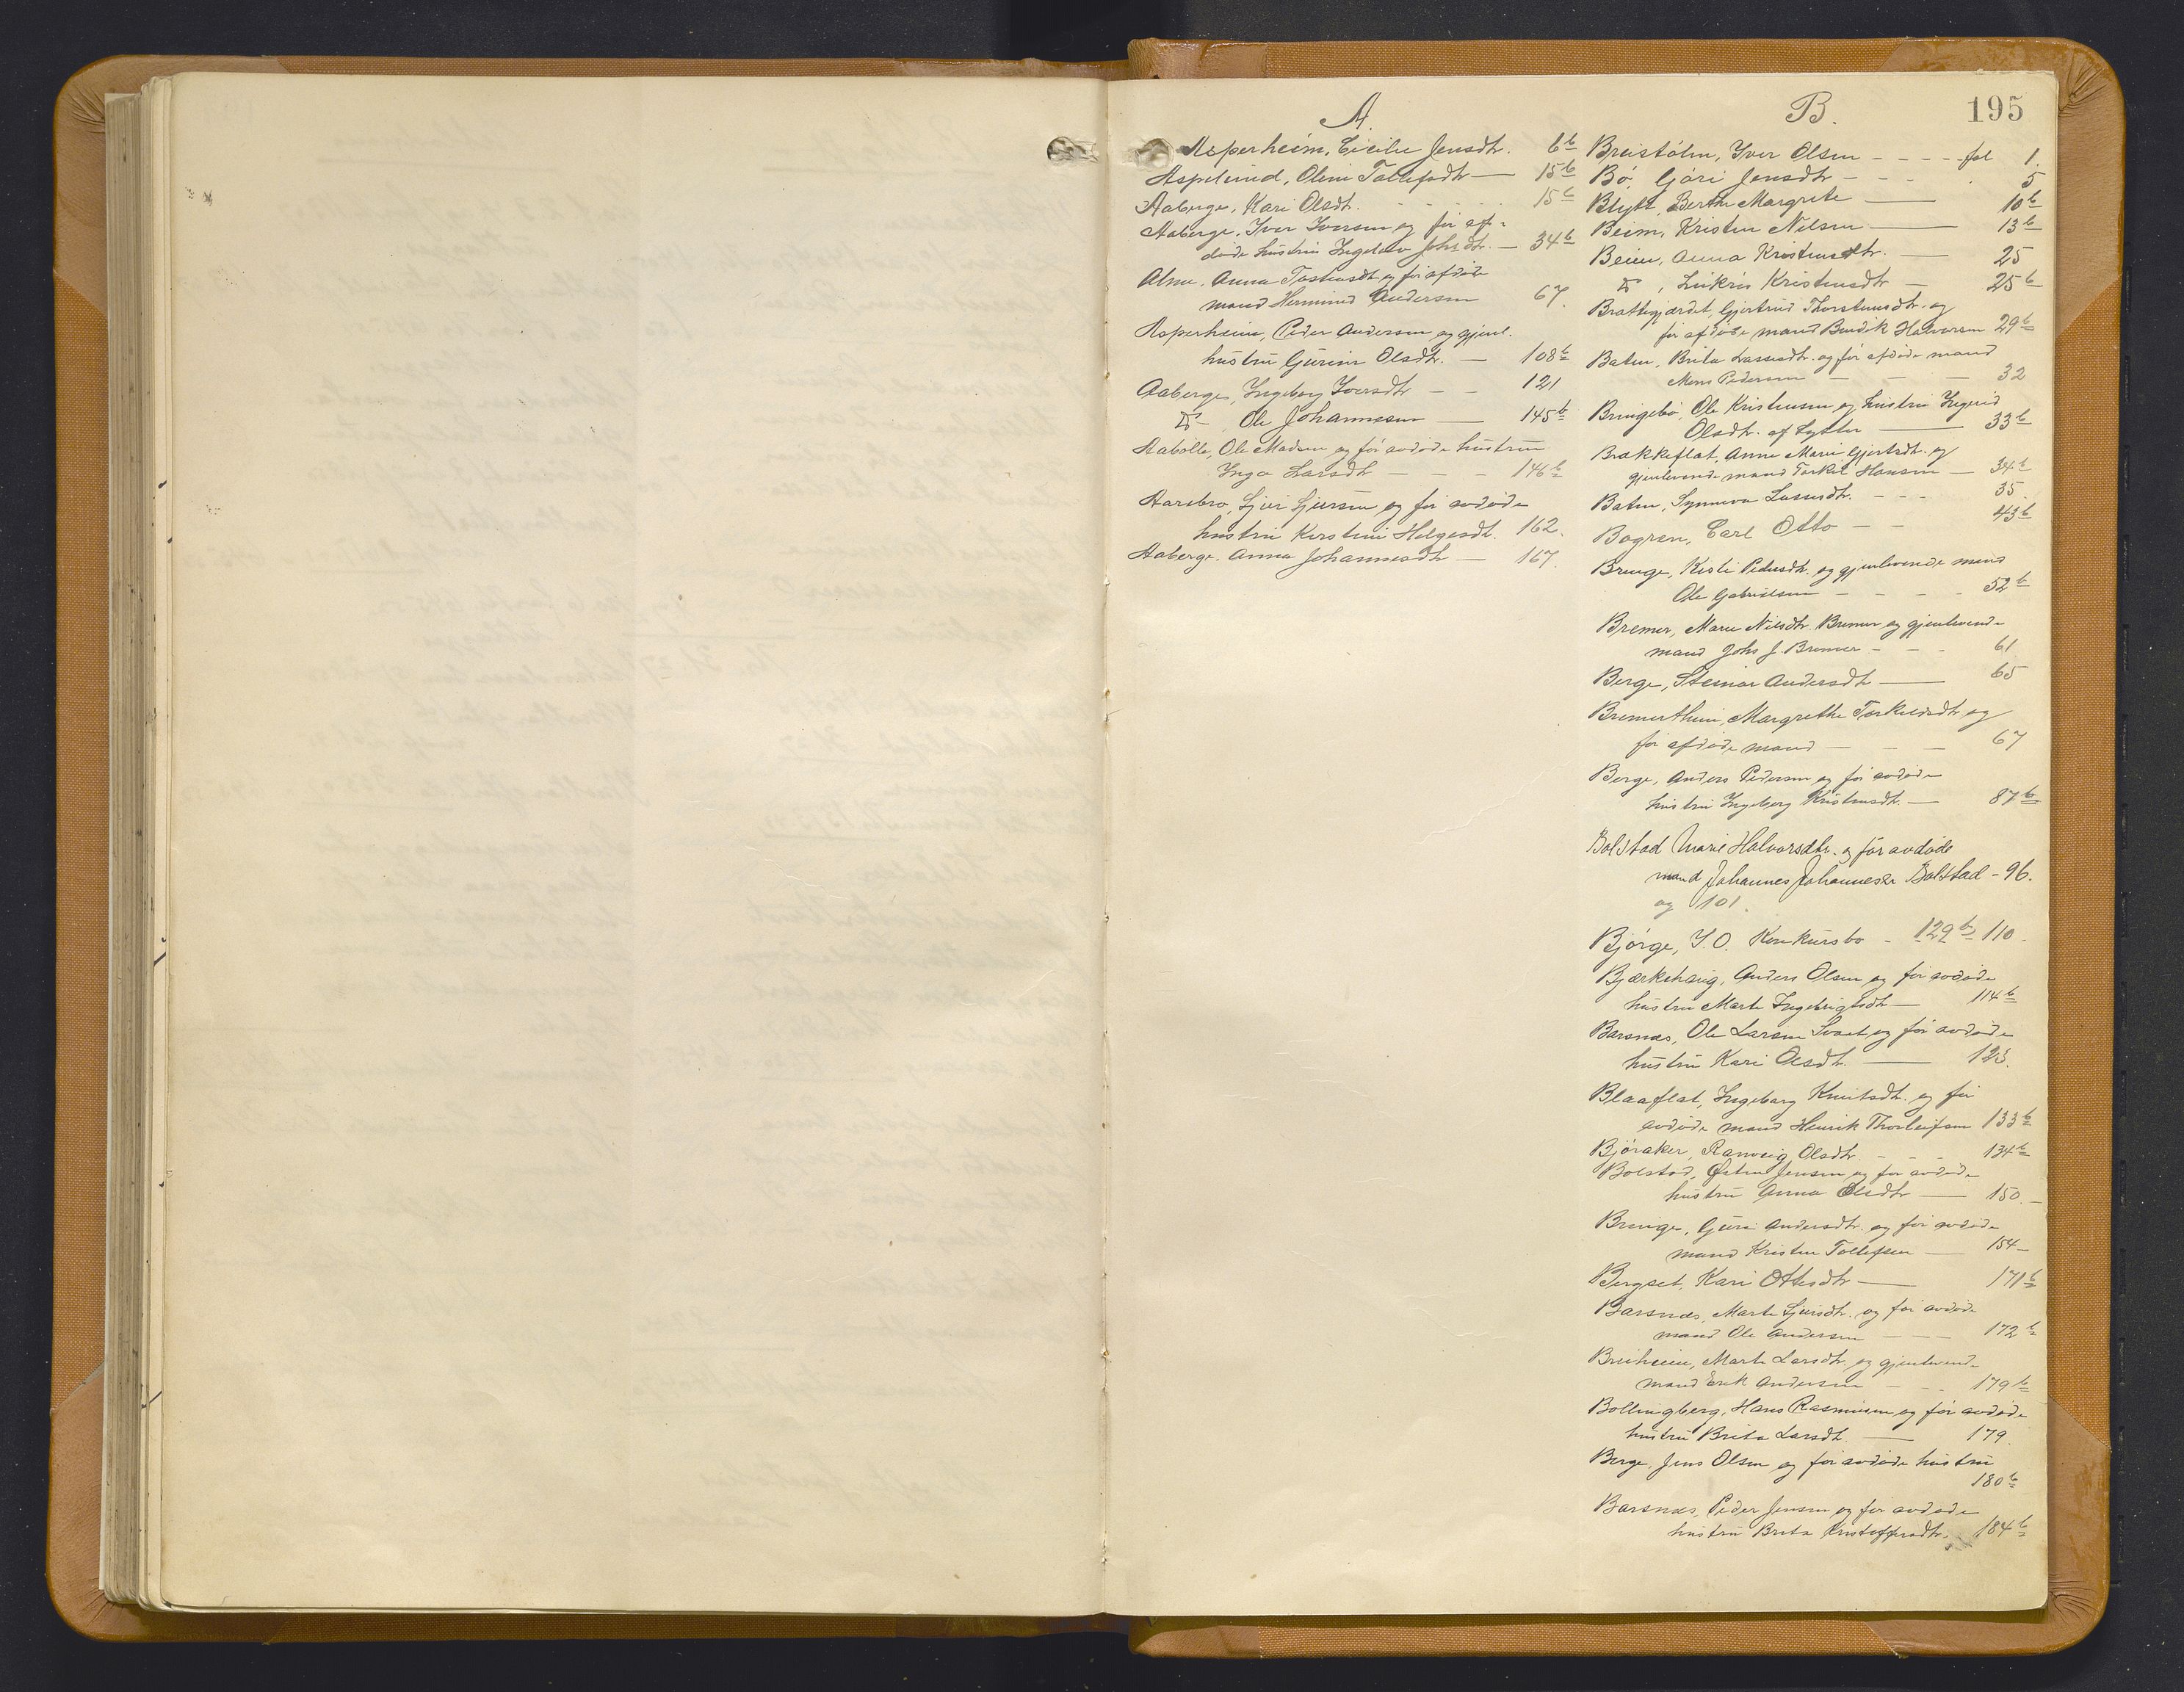 195
A.
Asperheim, Cicilie Jensdtr. 6b
Aspelund, Oline Tollefsdtr — 15b
Aaberge, Kari Olsdt. 15b
Aaberge, Iver Iversen og før af-
døde hustru Ingeleiv Johsdtr. — 34b
Alme, Anna Tostensdtr og før afdøde
mand Hermund Andersen 67.
Asperheim, Peder Andersen og gjenl.
hustru Gurine Olsdtr. — 108b
Aaberge, Ingeborg Iversdtr — 121
do Ole Johannessen — 145b
Aabölle, Ole Madsen og før avdøde hustru
Inga Larsdtr — 146b
Aarebro, Sjur Sjursen og før avdøde
hustru Kerstine Helgesdtr. 162.
Aaberge. Anna Johannesdtr — 167.
B.
Breistølen, Iver Olsen — fol 1.
Bø, Gjøri Jensdtr — 5
Blytt, Berthe Margrete — 10b
Beim, Kristen Nilsen — 13b
Beim, Anna Kristensdtr. — 25
do, Kristensdtr — 25b
Brattegjærdet, Gjertrud Thorstensdtr. og
før afdøde mand Bendik Halvorsen 29b
Baten, Brita Lassesdtr. og før afdøde mand
Mons Pedersen — 32
Bringebø, Ole Kristensen og hustru Ingerid
Olsdtr. af Lyster — 33b
Brakkeflat, Anne Marie Gjertsdtr. og
gjenlevende mand Torkel Hansen — 34b
Baten, Synneva Lassesdtr. — 35
Bogren, Carl Otto — 43b
Bruge, Kisti Pedersdtr. og gjenlevende mand
Ole Gabrielsen — 52b
Bremer, Marie Nilsdtr. Bremer og gjenlevende
mand Johs J. Bremer — 61
Berge, Steinar Andersdtr — 65
Bremertheim, Margrethe Torkeldsdtr. og
før afdøde mand — 67
Berge, Anders Pedersen og før avdøde
hustru Ingeborg Kristensdtr. — 87b
Bolstad Marie Halvorsdtr. og før avdøde
mand Johannes Johannessen Bolstad - 96.
og 101.
Bjørge, I. O. Konkursbo - 129b 110.
Bjørkehaug, Anders Olsen og før avdøde
hustru Marte Ingebrigtsdtr — 114b
Barsnes, Ole Larsen Svaet og før avdøde
hustru Kari Olsdtr. — 123.
Blaaflat, Ingeborg Knutsdtr. og før
avdøde mand Henrik Thorleifsen 133b
Bjøraker, Ranveig Olsdtr. — 134b
Bolstad, Østen Jensen og før avdøde
hustru Anna Olsdtr — 150.-
Bringe, Guri Andersdtr. og før avdøde
mand Kristen Tollefsen — 154-
Bergset, Kari Ottesdtr — 171b
Barsnes, Marte Sjursdtr. og før avdøde
mand Ole Andersen — 172b
Breiheim, Marte Larsdtr. og gjenlevende
mand Erik Andersen — 179b
Bollingberg, Hans Rasmussen og før avdøde
hustru Brita Larsdtr. — 179.
Berge, Jens Olsen og før avdøde hustru
180b
Barsnes, Peder Jensen og før avdøde
hustru Brita Kristoffersdtr. 184b